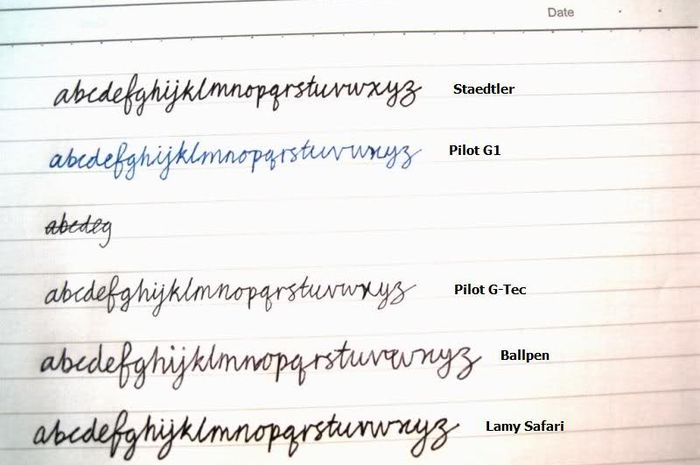 Date
abcdefghijklmnopqrstuvwxyz Staedtler
abcdefghijklmnopqrstuvwxyz Pilot G1
abcdeg
abcdefghijklmnopqrstuvwxyz Pilot G-Tec
abcdefghijklmnopqrstuvwxyz Ballpen
abcdefghijklmnopqrstuvwxyz Lamy Safari